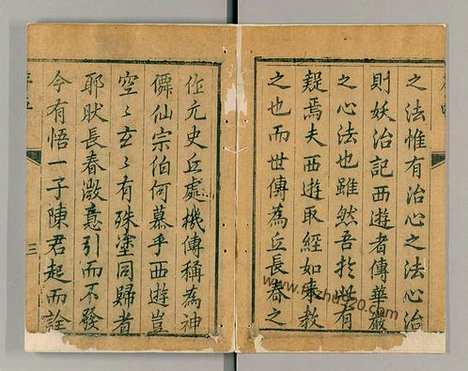 之法惟有治心之法心治
則妖治記西遊者傳華嚴
之心法也雖然吾於此有
疑焉夫西遊取經如來教
之也而世傳為丘長春之
作元史丘處機傳稱為神
僊仙宗伯何慕乎西遊豈
空〻玄〻有殊塗同歸者
耶狀長春澂意引而不發
今有悟一子陳君起而詮
三